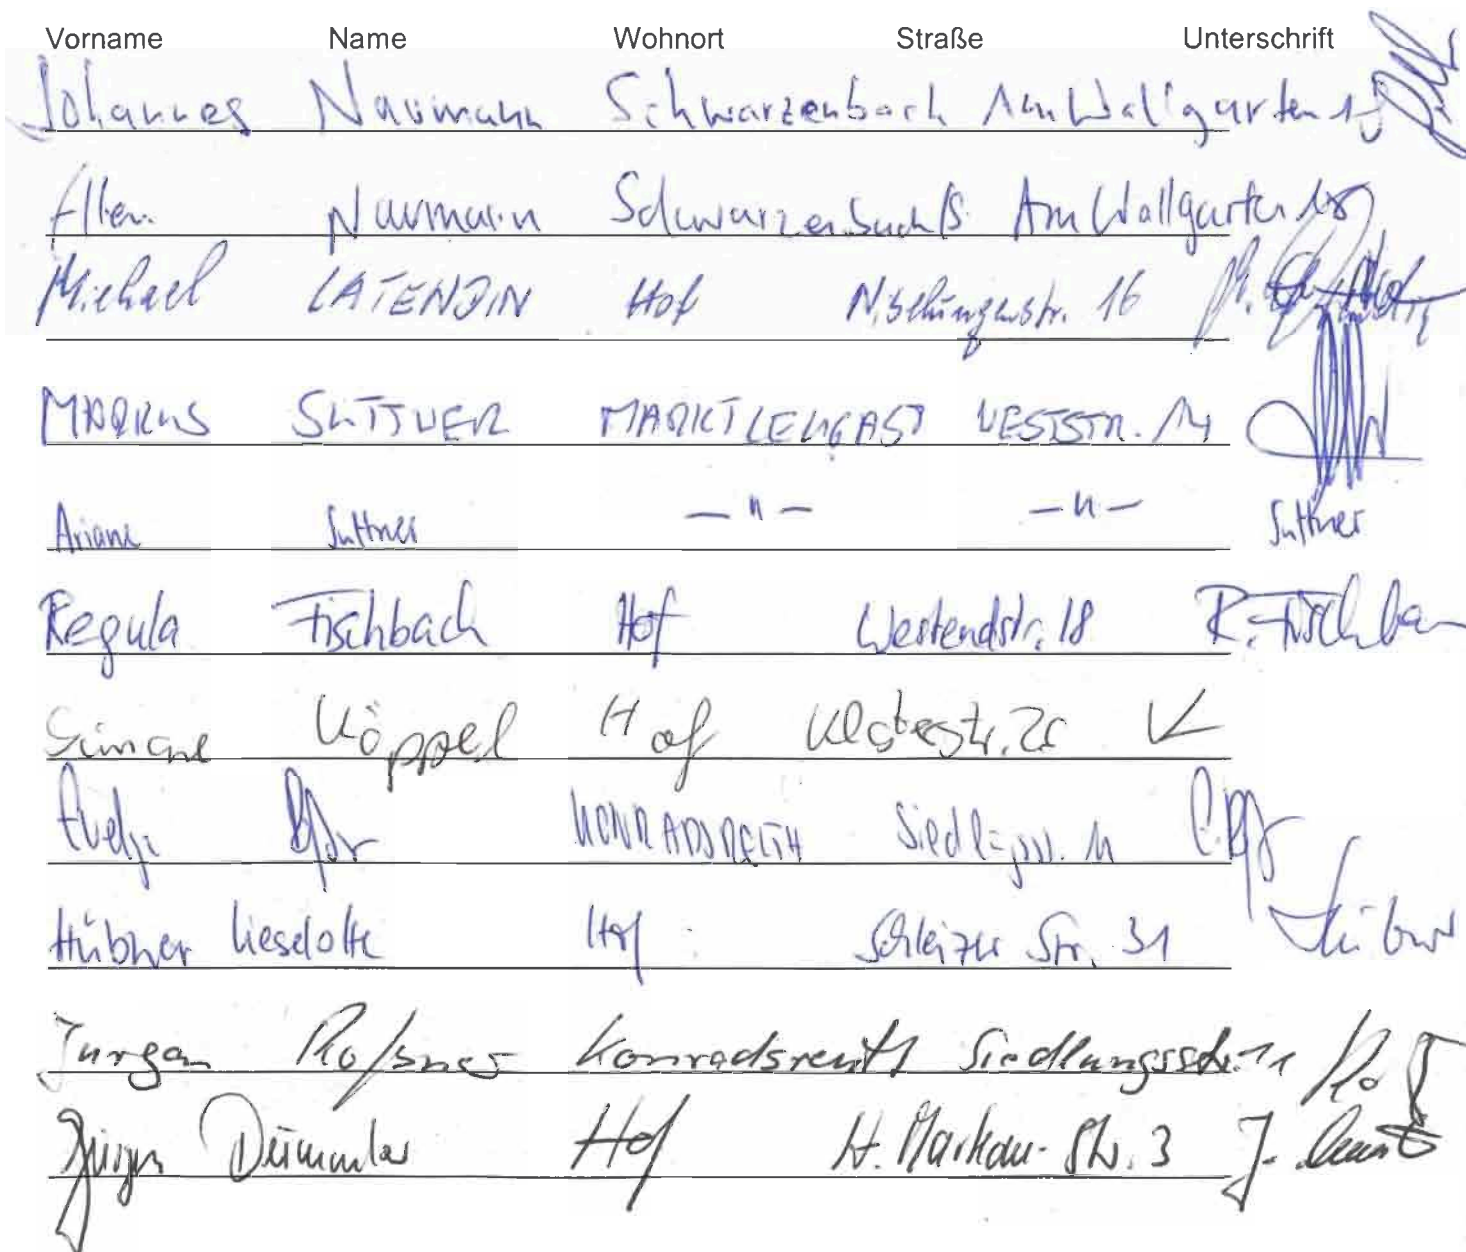 Vorname Name Wohnort Straße Unterschrift
Johannes Naumann Schwarzenbach Am Wallgarten 18
Ellen Naumann Schwarzenbach/S Am Wallgarten 18
Michael LATENDIN Hof 16
MARKUS SUTTNER MARKTLEUGAST WESTSTR. 14
Ariane Suttner — " — — " — Suttner
Regula Fischbach Hof Westendstr. 18 R. Fischba
Simone Köppel Hof
KONRADSREUTH 11
Hübner Lieselotte Hof Schleizer Str. 31 Hübner
Jürgen Roßner Konradsreuth Siedlungsstr. 11
Jürgen Dümmler Hof H. Markau-Str. 3